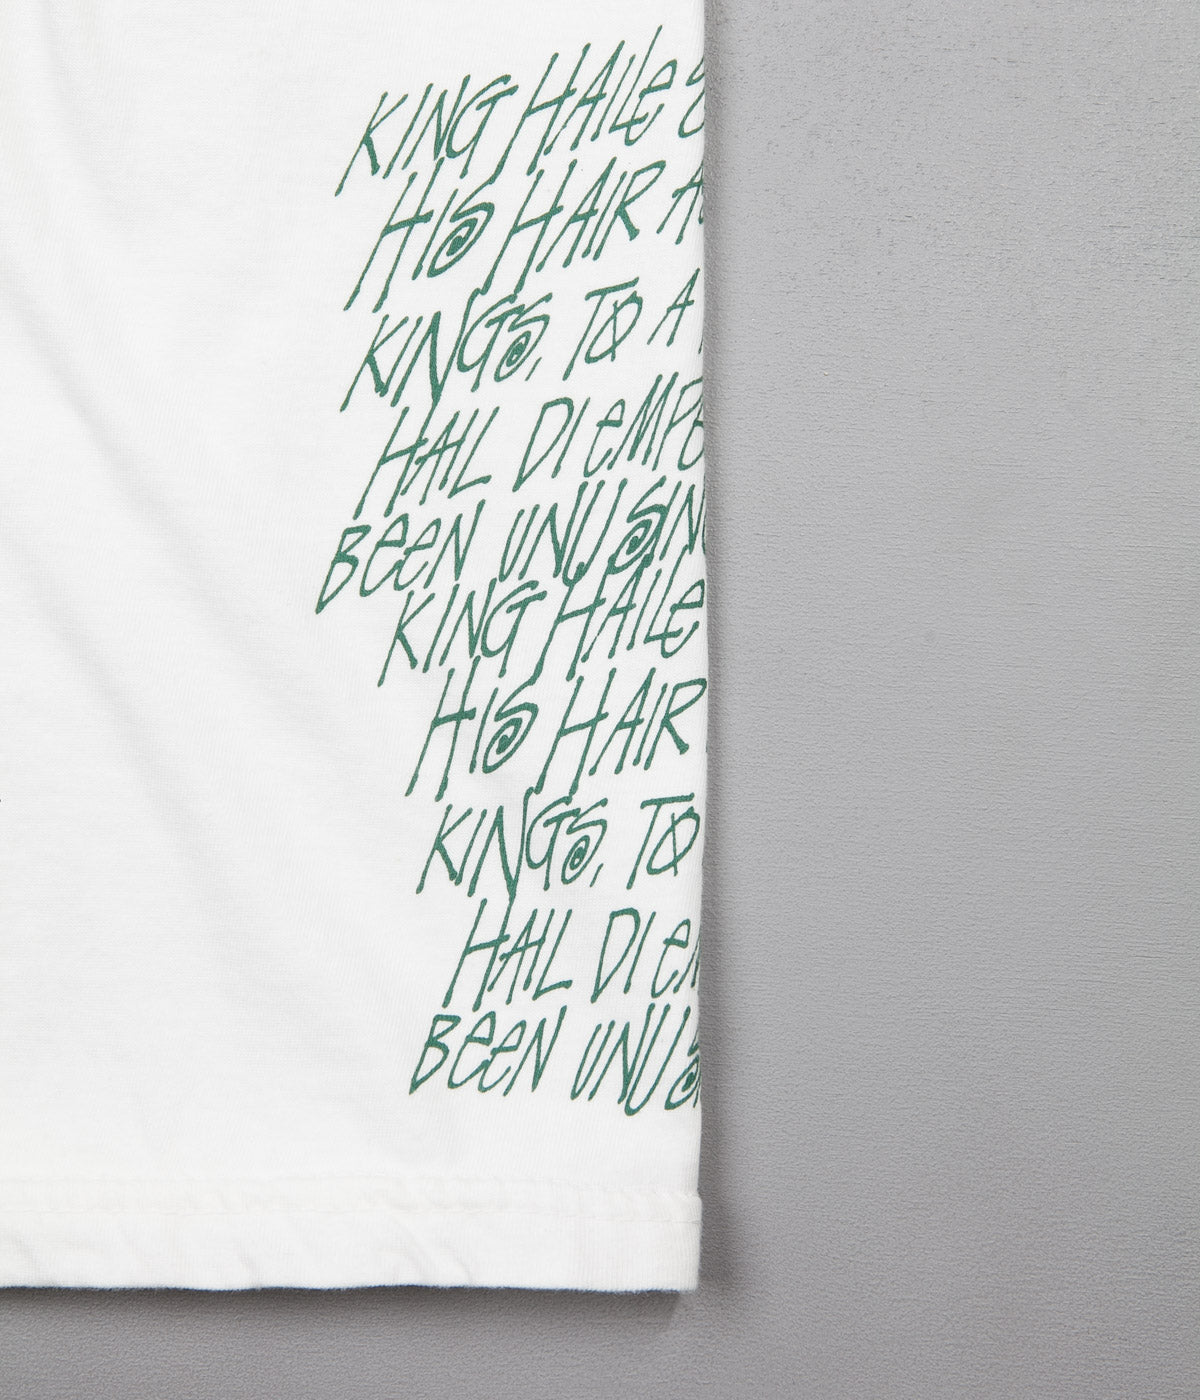 KING HAILE
HIS HAIR
KINGS, TO A
HAIL DI EMPE
BEEN UNUSING
KING HAILE
HIS HAIR
KINGS, TO
HAIL DI EM
BEEN UNUS